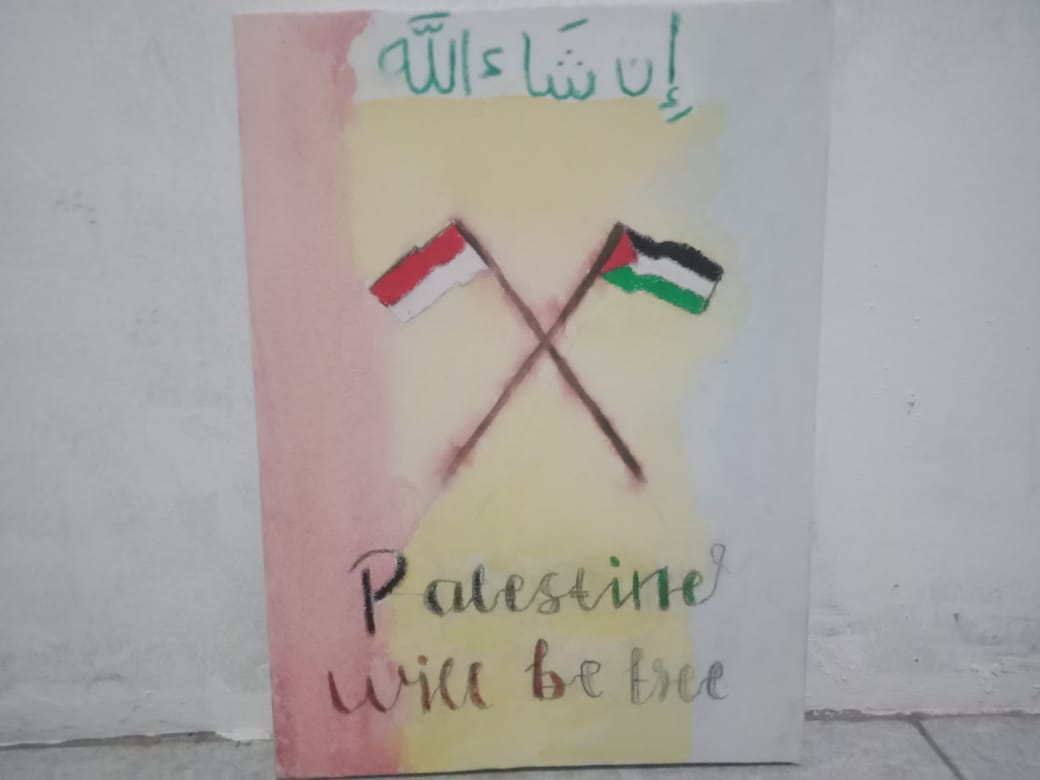 إِن شَاء اللَّه
Palestine
will be free